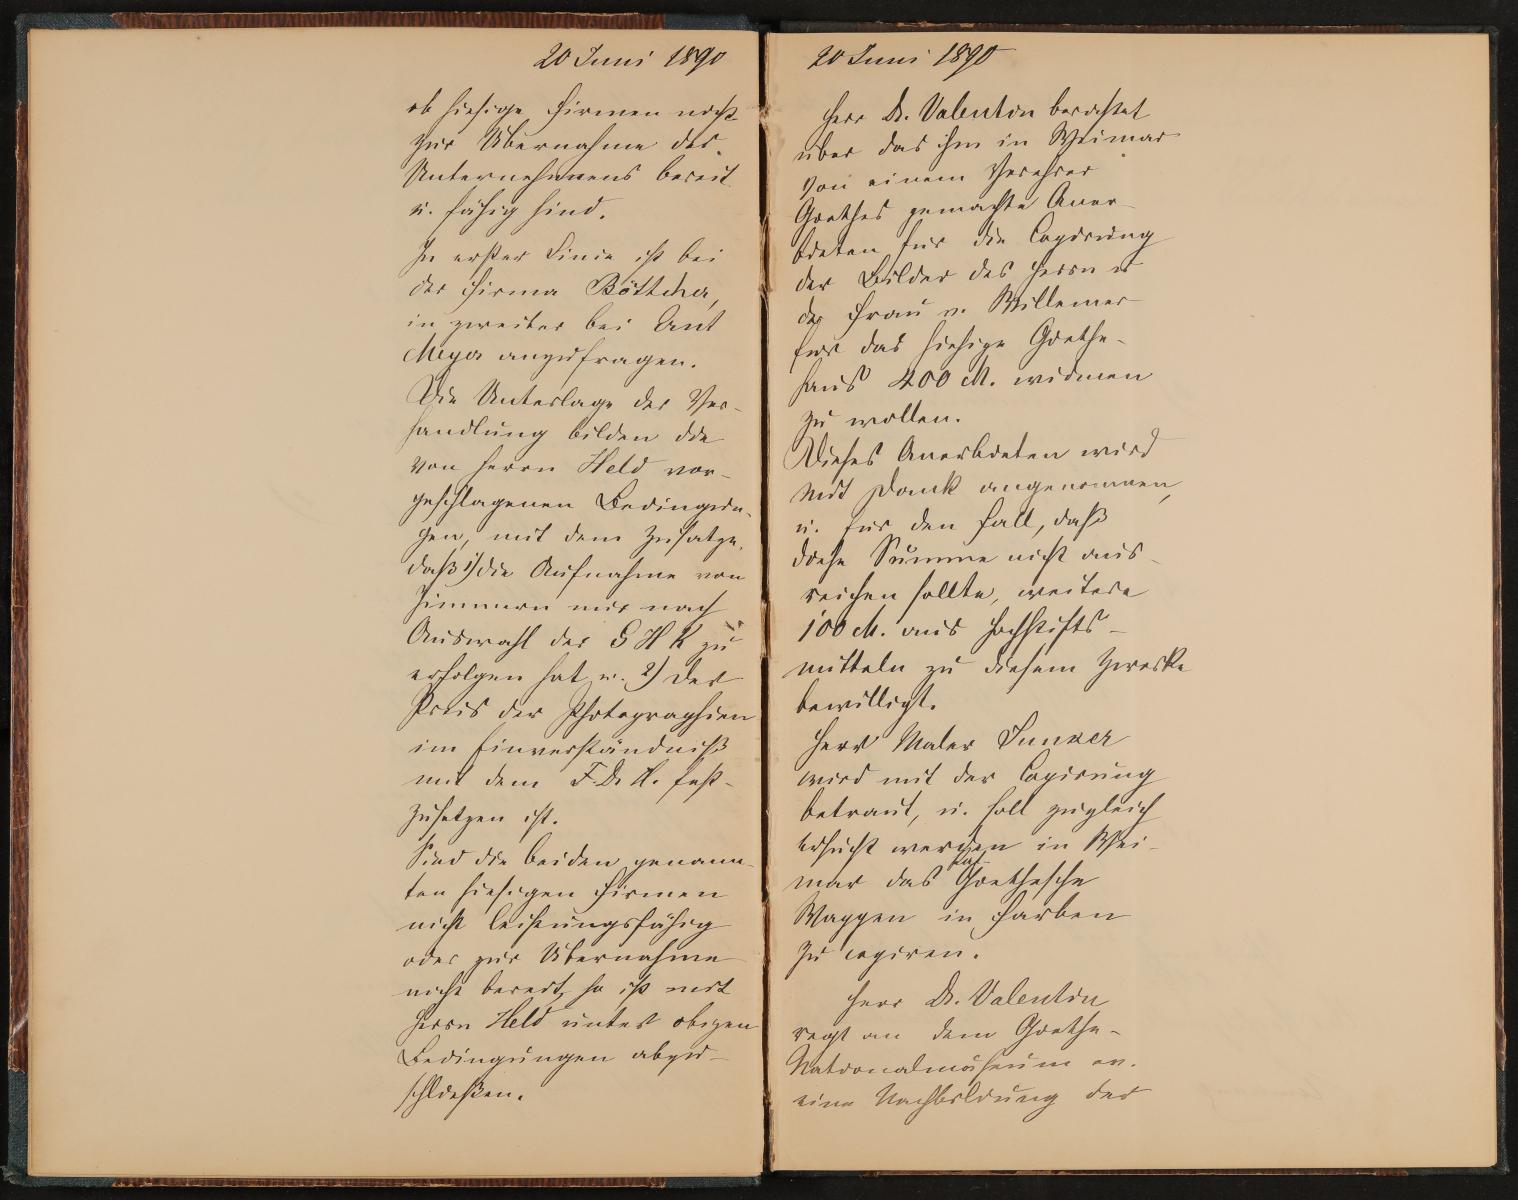 20 Juni 1890
ob hiesige Firmen nicht
zur Übernahme des
Unternehmens bereit
u. fähig sind.
In erster Linie ist bei
der Firma Böttcher,
in zweiter bei Ant
Meyer anzufragen.
Die Unterlage der Ver-
handlung bilden die
von Herrn Held vor-
geschlagenen Bedingun-
gen, mit dem Zusatze,
daß 1) die Aufnahme von
Zimmern nur nach
Auswahl der G H K zu
erfolgen hat u. 2) der
Preis der Photographien
im Einverständniß
mit dem F. D. H. fest-
zusetzen ist.
Sind die beiden genann-
ten hiesigen Firmen
nicht leistungsfähig
oder zur Übernahme
nicht bereit, so ist mit
Herrn Held unter obigen
Bedingungen abzu-
schließen.
20 Juni 1890
Herr Dr. Valentin berichtet
über das ihm in Weimar
von einem Verehrer
Goethes gemachte Aner-
bieten für die Copirung
der Bilder des Herrn u
der Frau v. Willemer
für das hiesige Goethe-
haus 400 M. widmen
zu wollen.
Dieses Anerbieten wird
mit Dank angenommen,
u. für den Fall, daß
diese Summe nicht aus-
reichen sollte, weitere
100 M. aus Hochstifts-
mitteln zu diesem Zwecke
bewilligt.
Herr Maler Junker
wird mit der Copirung
betraut, u. soll zugleich
ersucht werden in Wei-
mar das Goethesche
Wappen in Farben
zu copiren.
Herr Dr. Valentin
regt an dem Goethe-
Nationalmuseum ev.
eine Nachbildung des